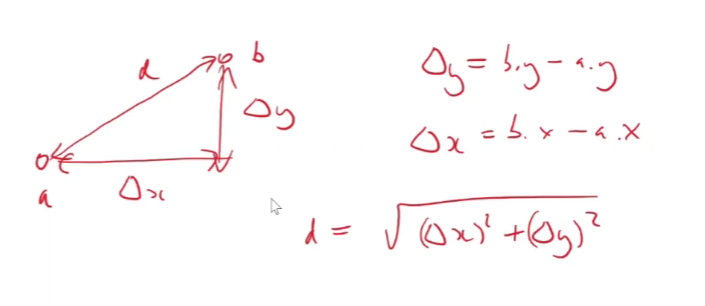 d
b
Δy
a
Δx
Δy = b.y - a.y
Δx = b.x - a.x
d = √(Δx)² + (Δy)²